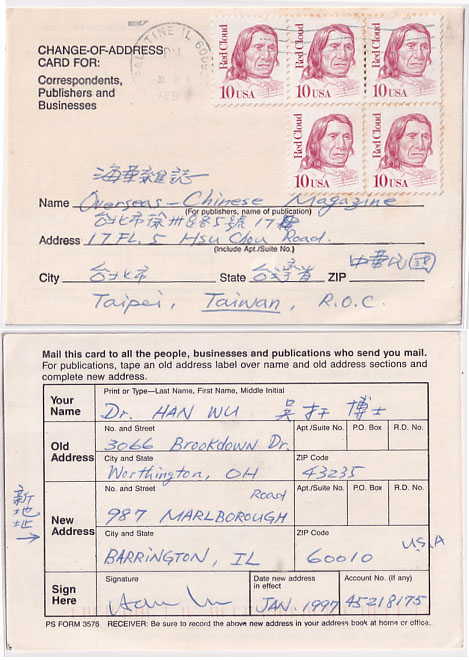 CHANGE-OF-ADDRESS
CARD FOR:
Correspondents,
Publishers and
Businesses
PALATINE IL 600
PM
Red Cloud
10 USA
Red Cloud
10 USA
Red Cloud
10 USA
Red Cloud
10 USA
Red Cloud
10 USA
海華雜誌
Name Overseas-Chinese Magazine
(For publishers, name of publication)
台北市徐州路5號17樓
Address 17 FL. 5 Hsu Chou Road.
(Include Apt./Suite No.)
中華民國
City 台北市 State 台灣省 ZIP
Taipei, Taiwan, R.O.C.
Mail this card to all the people, businesses and publications who send you mail.
For publications, tape an old address label over name and old address sections and
complete new address.
Your Name
Print or Type—Last Name, First Name, Middle Initial
Dr. HAN WU 吳 博士
Old Address
No. and Street Apt./Suite No. P.O. Box R.D. No.
3066 Brookdown Dr.
City and State ZIP Code
Worthington, OH 43235
新地址
New Address
No. and Street Apt./Suite No. P.O. Box R.D. No.
Road
987 MARLBOROUGH
City and State ZIP Code
BARRINGTON, IL 60010 U.S.A
Sign Here
Signature Date new address in effect Account No. (If any)
JAN. 1997 45218175
PS FORM 3576 RECEIVER: Be sure to record the above new address in your address book at home or office.